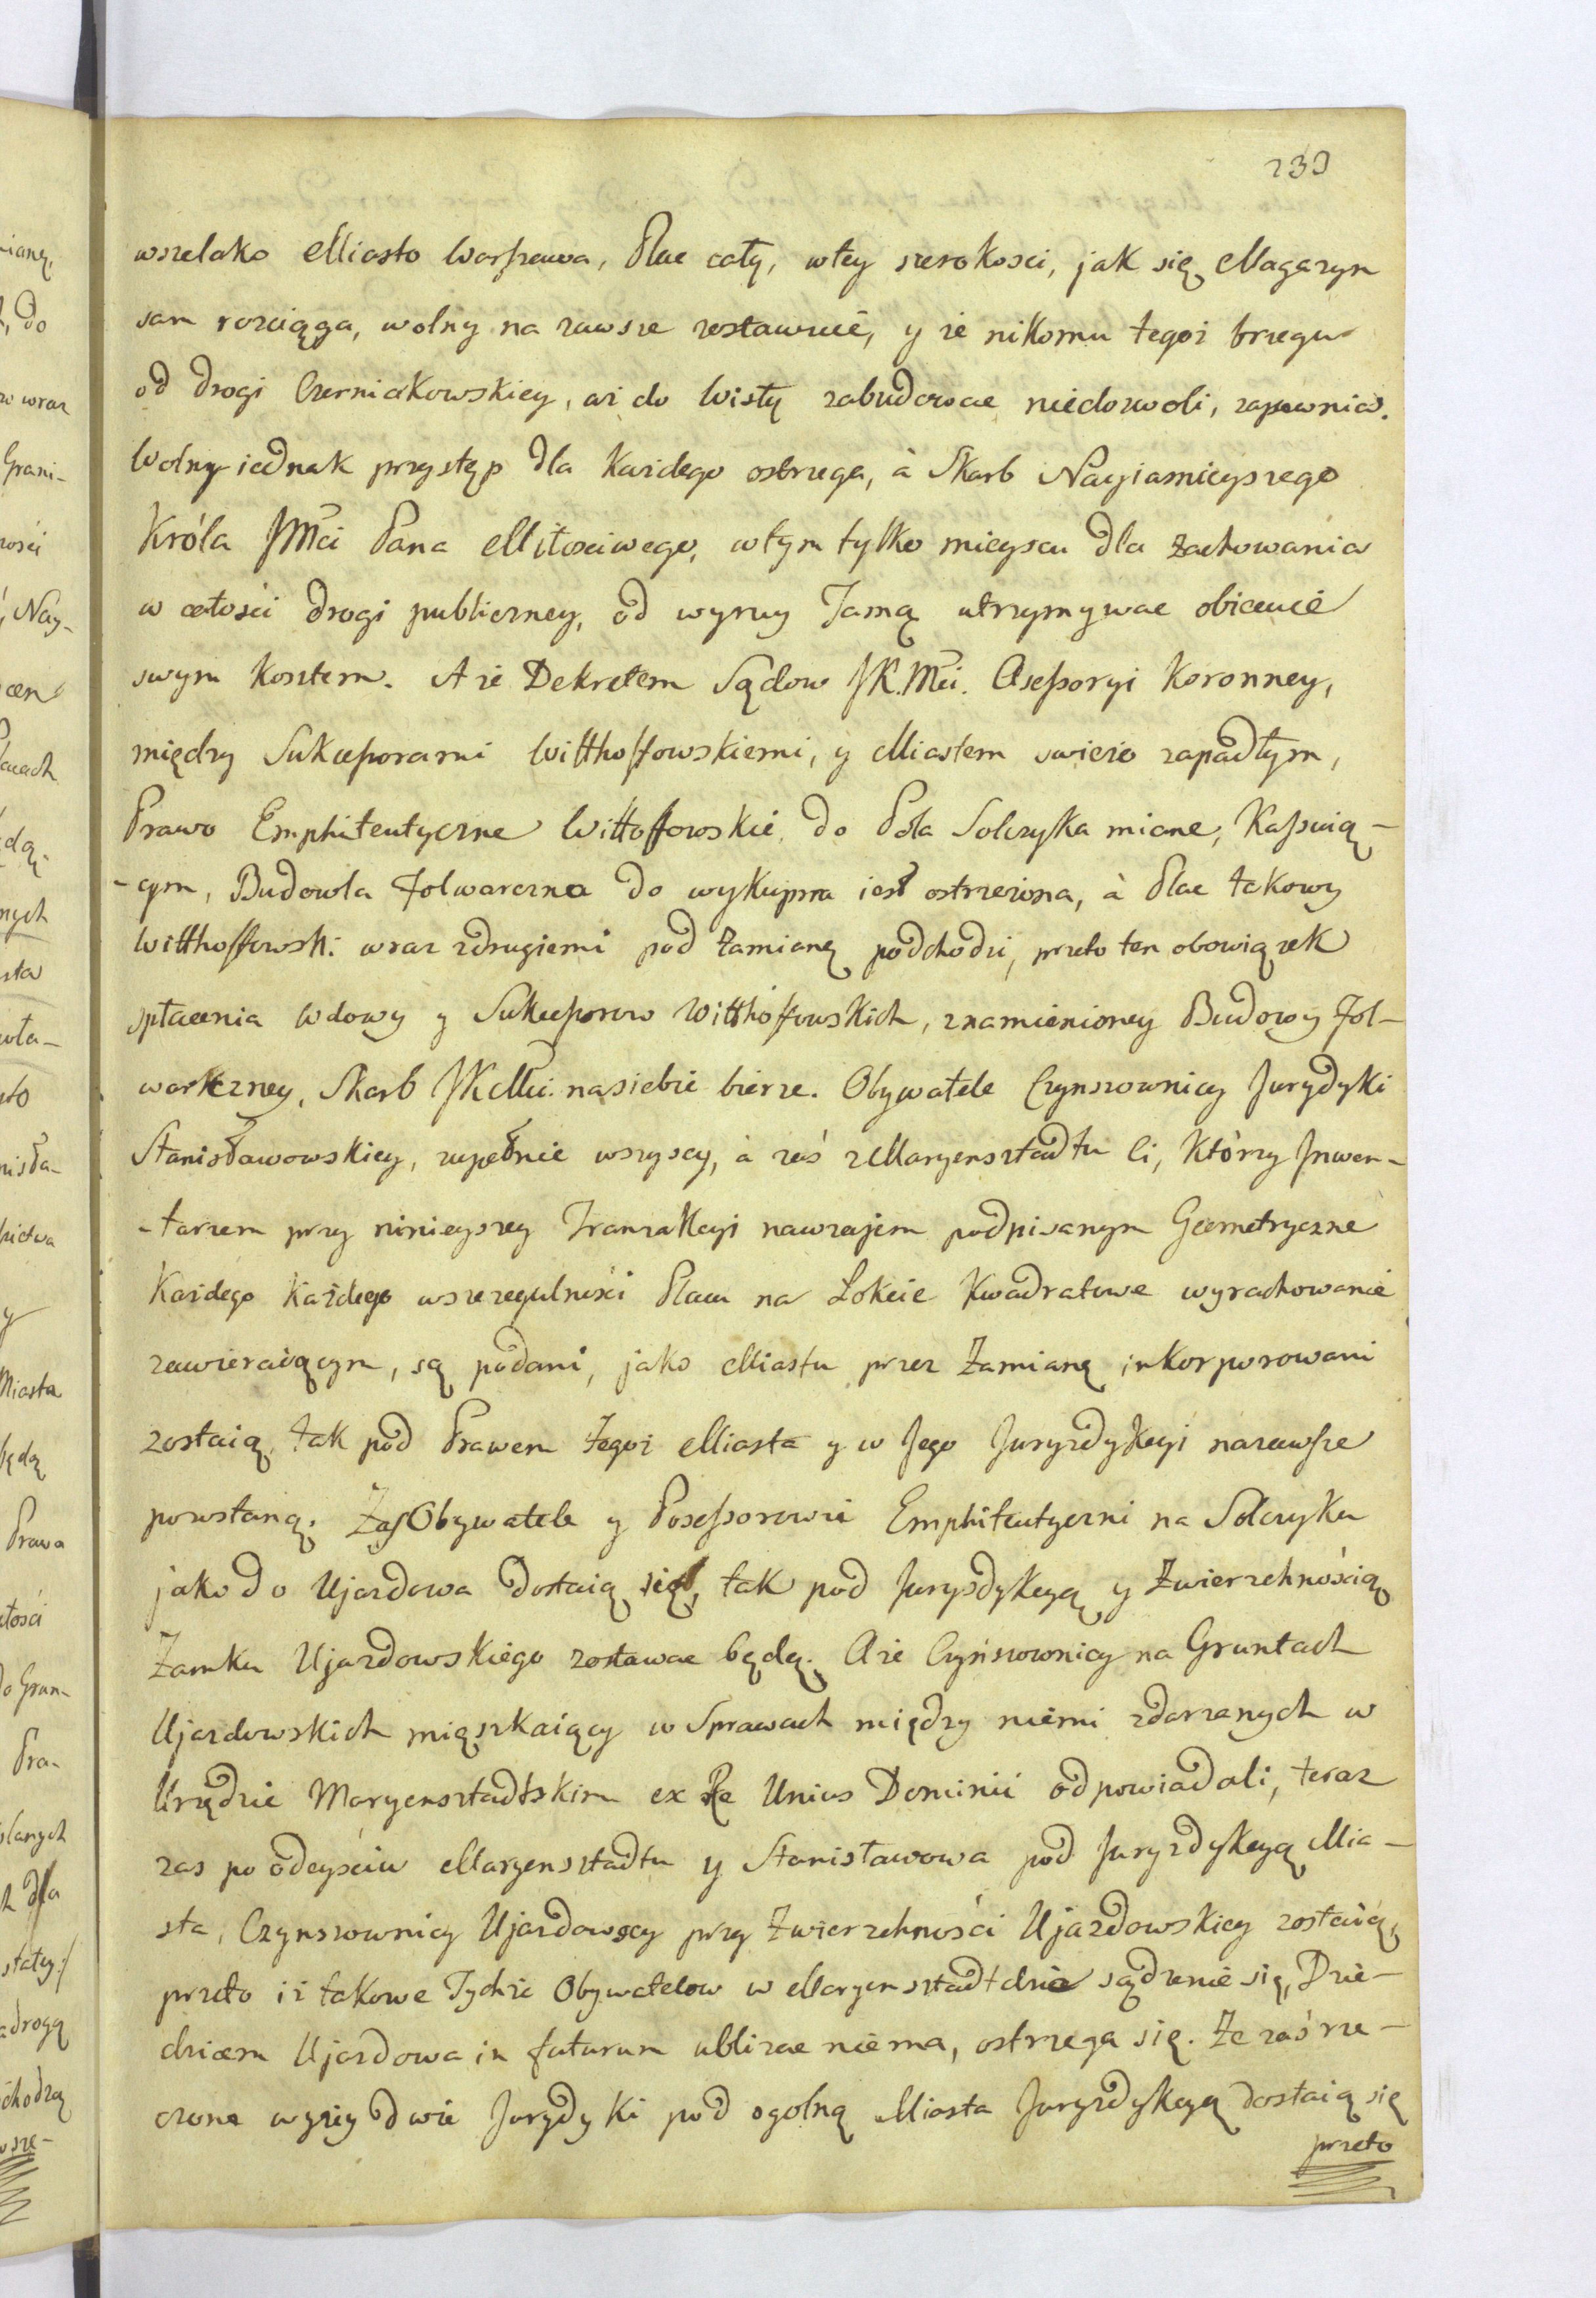 239
wszelako Miasto Warszawa, Plac cały, wtey szerokosci, jak się Magazyn
sam rozciąga, wolny na zawsze zostawuie, y że nikomu tegoż brzegu
od drogi Czerniakowskiey, aż do Wisły zabudować niedozwoli, zapewnia.
Wolny iednak przystęp dla Każdego ostrzega, à Skarb Nayiasnieyszego
Króla JMci Pana Miłosciwego, wtym tylko mieyscu dla zachowania
w całości drogi publiczney, od wyrwy Tamą utrzymywac obiecuie
swym Kosztem. A że Dekretem Sądow JK.Mci. Asessoryi Koronney,
między Sukcessorami Witthoffowskiemi, y Miastem swieżo zapadłym,
Prawo Emphiteutyczne Wittoffowskie do Pola Solczyka miane, Kassuią-
-cym, Budowla Folwarczna do wykupna iest ostrzeżona, à Plac takowy
Witthoffowski wraz zdrugiemi pod Zamianę podchodzi, przeto ten obowiązek
spłacenia Wdowy y Sukcessorow Witthoffowskich, znamienioney Budowy Fol-
warczney, Skarb JKMci nasiebie bierze. Obywatele Czynszownicy Jurydyki
Stanisławowskiey, zupełnie wszyscy, à zaś zMaryensztadtu Ci, Którzy Inwen-
-tarzem przy ninieyszey Tranzakcyi nawzajem podpisanym Geometryczne
Każdego Każdego wszczegulności Placu na Łokcie Kwadratowe wyrachowanie
zawieraiącym, są podani, jako Miastu przez Zamianę inkorporowani
zostaią, tak pod Prawem tegoż Miasta y w Jego Juryzdykcyi nazawsze
powstaną. Zaś Obywatele y Possessorowie Emphiteutyczni na Solczyku
jako do Ujazdowa dostaią się, tak pod Jurysdykcyą y Zwierzchnością
Zamku Ujazdowskiego zostawac będą. A że Czyńszownicy na Gruntach
Ujazdowskich mięszkaiący w Sprawach między niemi zdarzanych w
Urzędzie Maryensztadtskim ex Re Unius Dominii odpowiadali, teraz
zas po odeyściu Maryensztadtu y Stanisławowa pod Juryzdykcyą Mia-
sta, Czynszownicy Ujazdowscy przy Zwierzchności Ujazdowskiey zostaią,
przeto iż takowe Tychże Obywatelow w Maryensztadtdnie sądzenie się, Dzie-
dzicem Ujazdowa in futurum ubliżac niema, ostrzega się. Że zaś rze-
czone wyżey dwie Jurydyki pod ogolną Miasta Juryzdykcyą dostaią się
przeto